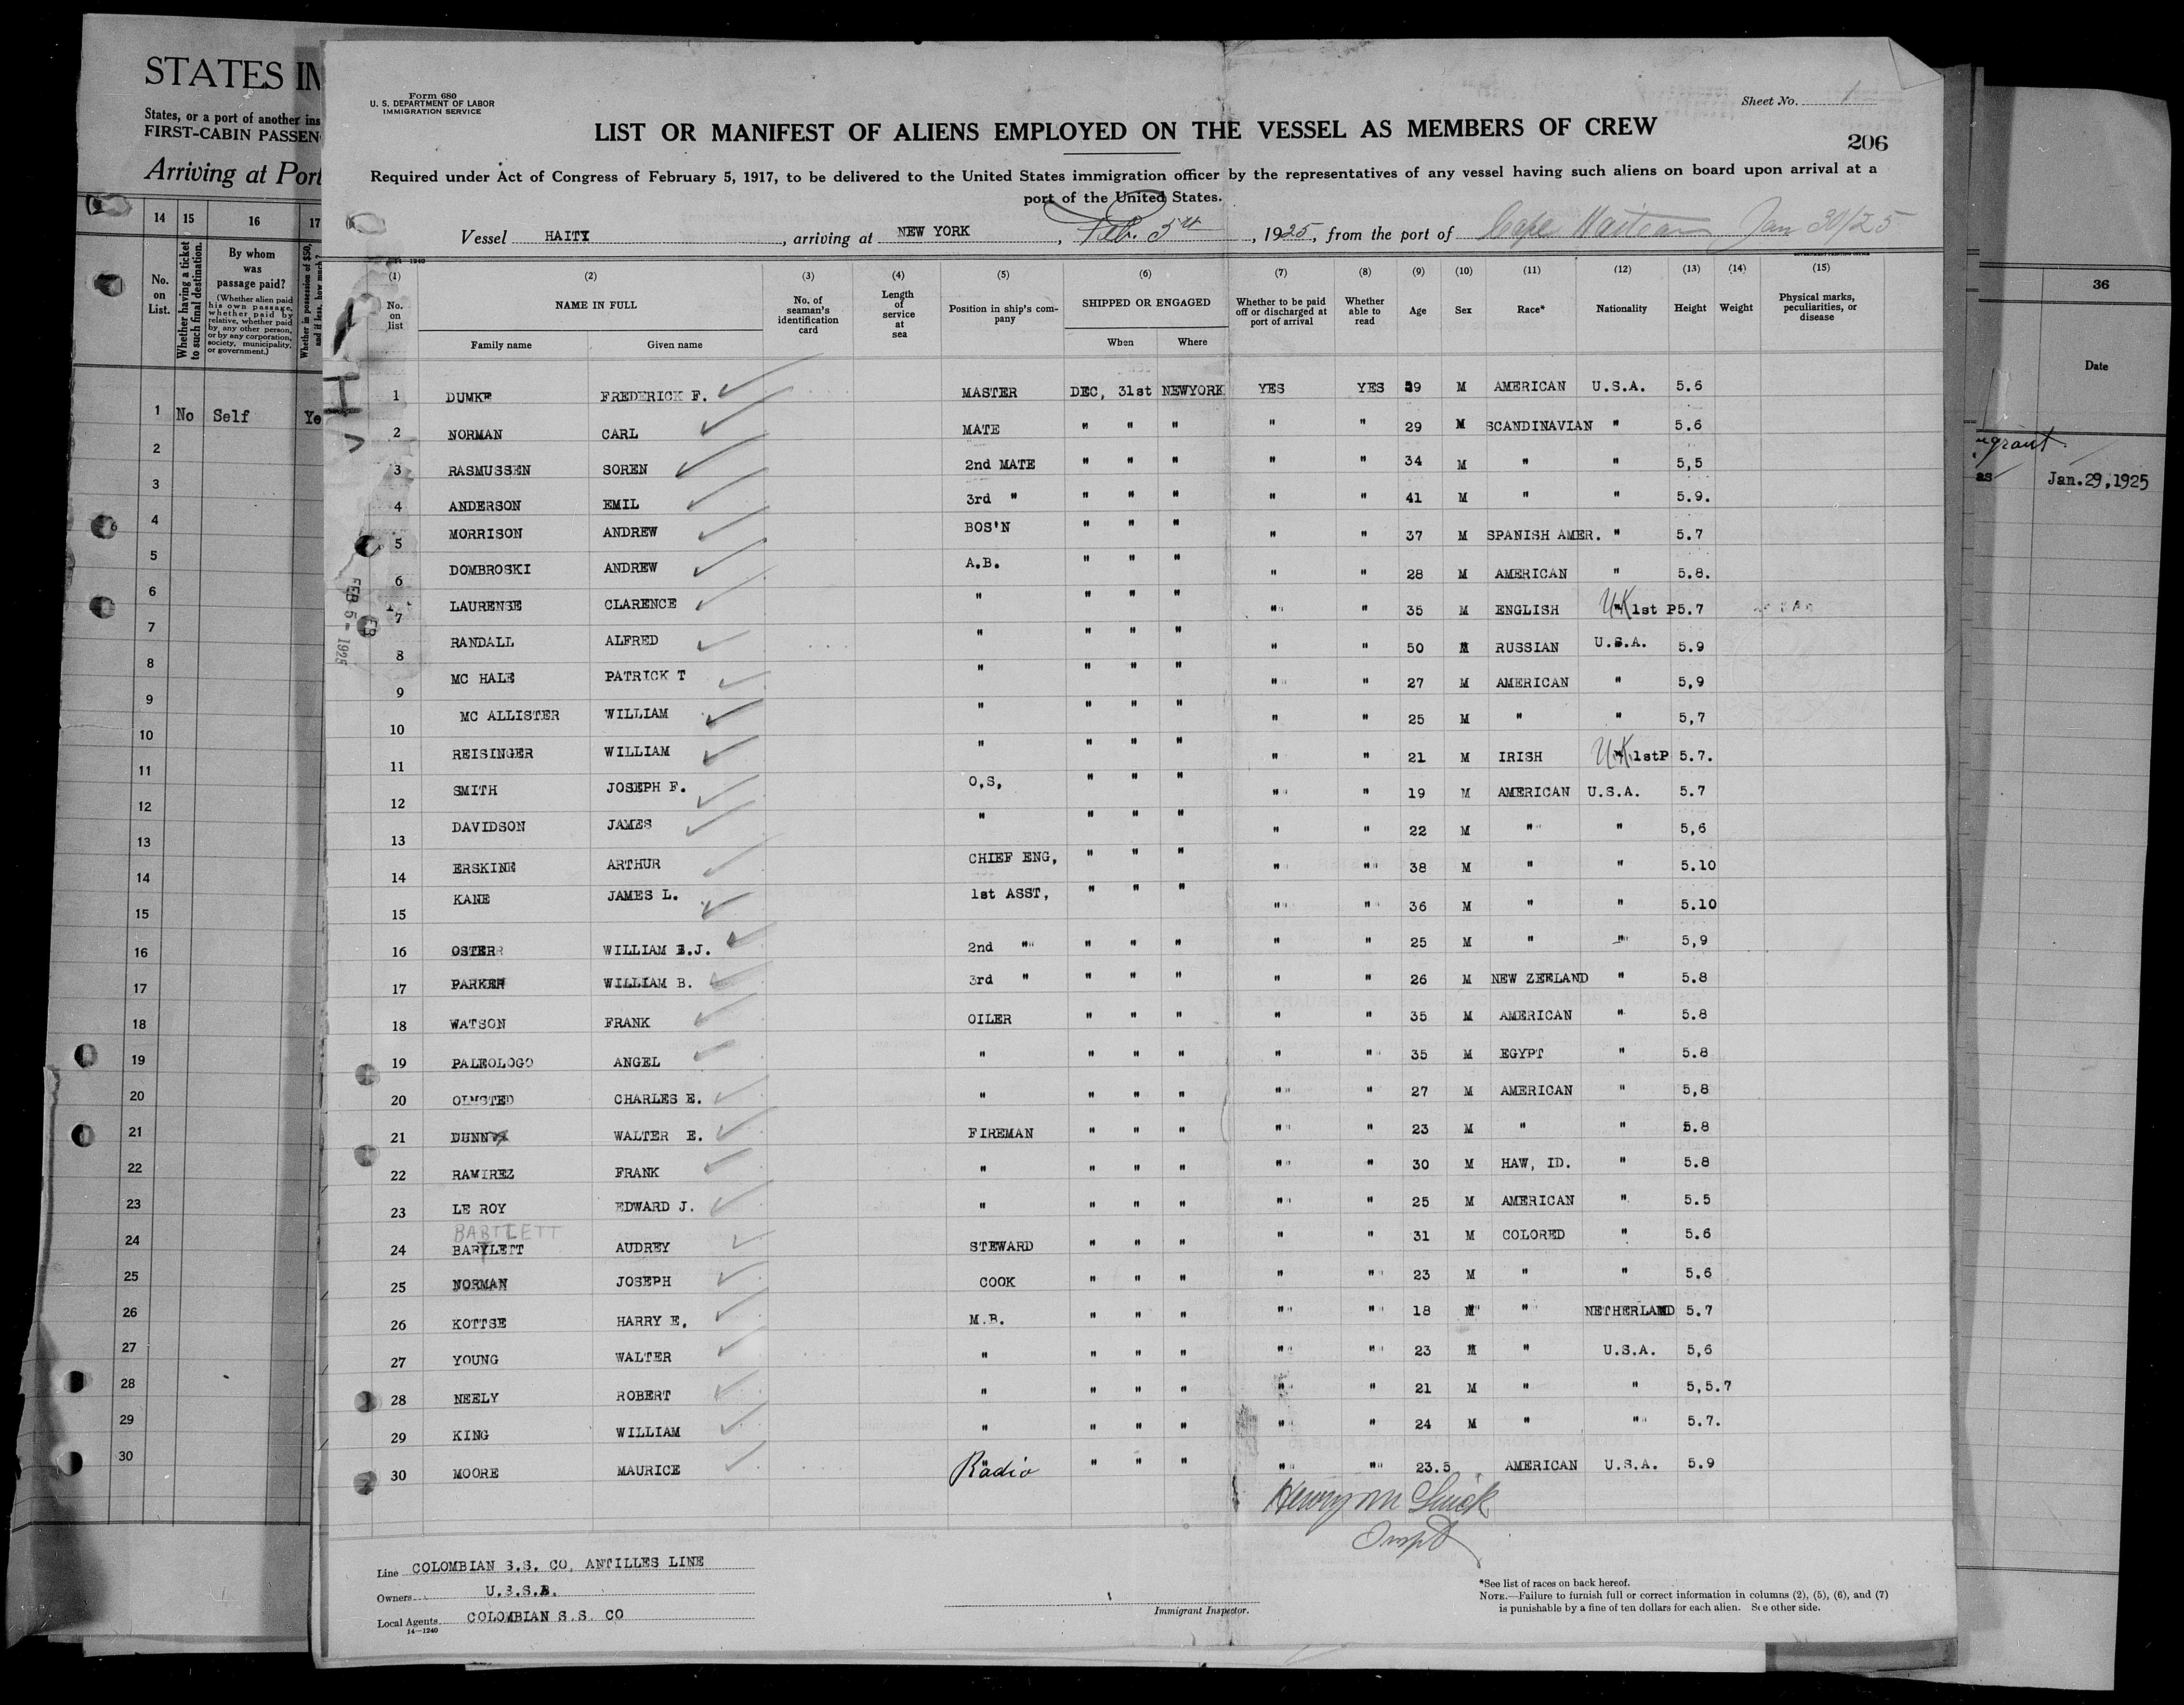 STATES IN
States, or a port of another ins
FIRST-CABIN PASSEN
Arriving at Port
14 15 16 17
No. on List.
Whether having a ticket to such final destination.
By whom was passage paid?
(Whether alien paid his own passage, whether paid by relative, whether paid by any other person, or by any corporation, society, municipality, or government.)
Whether in possession of $50, and if less, how much?
1 No Self Ye
2
3
4
5
6
7
8
9
10
11
12
13
14
15
16
17
18
19
20
21
22
23
24
25
26
27
28
29
30
Form 680
U. S. DEPARTMENT OF LABOR
IMMIGRATION SERVICE
Sheet No. 1
LIST OR MANIFEST OF ALIENS EMPLOYED ON THE VESSEL AS MEMBERS OF CREW
206
Required under Act of Congress of February 5, 1917, to be delivered to the United States immigration officer by the representatives of any vessel having such aliens on board upon arrival at a
port of the United States.
Vessel HAITI, arriving at NEW YORK, Feb. 5th, 1925, from the port of Cape Haitian Jan 30/25
14-1240
GOVERNMENT PRINTING OFFICE
(1) (2) (3) (4) (5) (6) (7) (8) (9) (10) (11) (12) (13) (14) (15)
No. on list
NAME IN FULL
Family name Given name
No. of seaman's identification card
Length of service at sea
Position in ship's company
SHIPPED OR ENGAGED
When Where
Whether to be paid off or discharged at port of arrival
Whether able to read
Age
Sex
Race*
Nationality
Height
Weight
Physical marks, peculiarities, or disease
FEB 5 - 1925
1 DUMKE FREDERICK F. MASTER DEC, 31st NEWYORK YES YES 39 M AMERICAN U.S.A. 5.6
2 NORMAN CARL MATE " " " " " 29 M SCANDINAVIAN " 5.6
3 RASMUSSEN SOREN 2nd MATE " " " " " 34 M " " 5,5
4 ANDERSON EMIL 3rd " " " " " " 41 M " " 5.9.
5 MORRISON ANDREW BOS'N " " " " " 37 M SPANISH AMER. " 5.7
6 DOMBROSKI ANDREW A.B. " " " " " 28 M AMERICAN " 5.8.
7 LAURENSE CLARENCE " " " " " " 35 M ENGLISH UK 1st P 5.7
8 RANDALL ALFRED " " " " " " 50 M RUSSIAN U.S.A. 5.9
9 MC HALE PATRICK T " " " " " " 27 M AMERICAN " 5,9
10 MC ALLISTER WILLIAM " " " " " " 25 M " " 5,7
11 REISINGER WILLIAM " " " " " " 21 M IRISH UK 1stP 5.7.
12 SMITH JOSEPH F. O,S, " " " " " 19 M AMERICAN U.S.A. 5.7
13 DAVIDSON JAMES " " " " " " 22 M " " 5,6
14 ERSKINE ARTHUR CHIEF ENG, " " " " " 38 M " " 5.10
15 KANE JAMES L. 1st ASST, " " " " " 36 M " " 5.10
16 OSTER WILLIAM E.J. 2nd " " " " " " 25 M " " 5,9
17 PARKER WILLIAM B. 3rd " " " " " " 26 M NEW ZEELAND " 5.8
18 WATSON FRANK OILER " " " " " 35 M AMERICAN " 5.8
19 PALEOLOGO ANGEL " " " " " " 35 M EGYPT " 5.8
20 OLMSTED CHARLES E. " " " " " " 27 M AMERICAN " 5,8
21 DUNN WALTER E. FIREMAN " " " " " 23 M " " 5.8
22 RAMIREZ FRANK " " " " " " 30 M HAW, ID. " 5.8
23 LE ROY EDWARD J. " " " " " " 25 M AMERICAN " 5.5
BARTLETT
24 BARTLETT AUDREY STEWARD " " " " " 31 M COLORED " 5.6
25 NORMAN JOSEPH COOK " " " " " 23 M " " 5.6
26 KOTTSE HARRY E, M.B. " " " " " 18 M " NETHERLAND 5.7
27 YOUNG WALTER " " " " " " 23 M " U.S.A. 5,6
28 NEELY ROBERT " " " " " " 21 M " " 5,5.7
29 KING WILLIAM " " " " " " 24 M " " 5.7.
30 MOORE MAURICE Radio " " " " " 23.5 AMERICAN U.S.A. 5.9
Inspt
Line COLOMBIAN S.S. CO, ANTILLES LINE
Owners U.S.S.B.
Local Agents COLOMBIAN S.S. CO
14-1240
Immigrant Inspector.
*See list of races on back hereof.
NOTE.—Failure to furnish full or correct information in columns (2), (5), (6), and (7)
is punishable by a fine of ten dollars for each alien. See other side.
36
Date
as Jan.29,1925